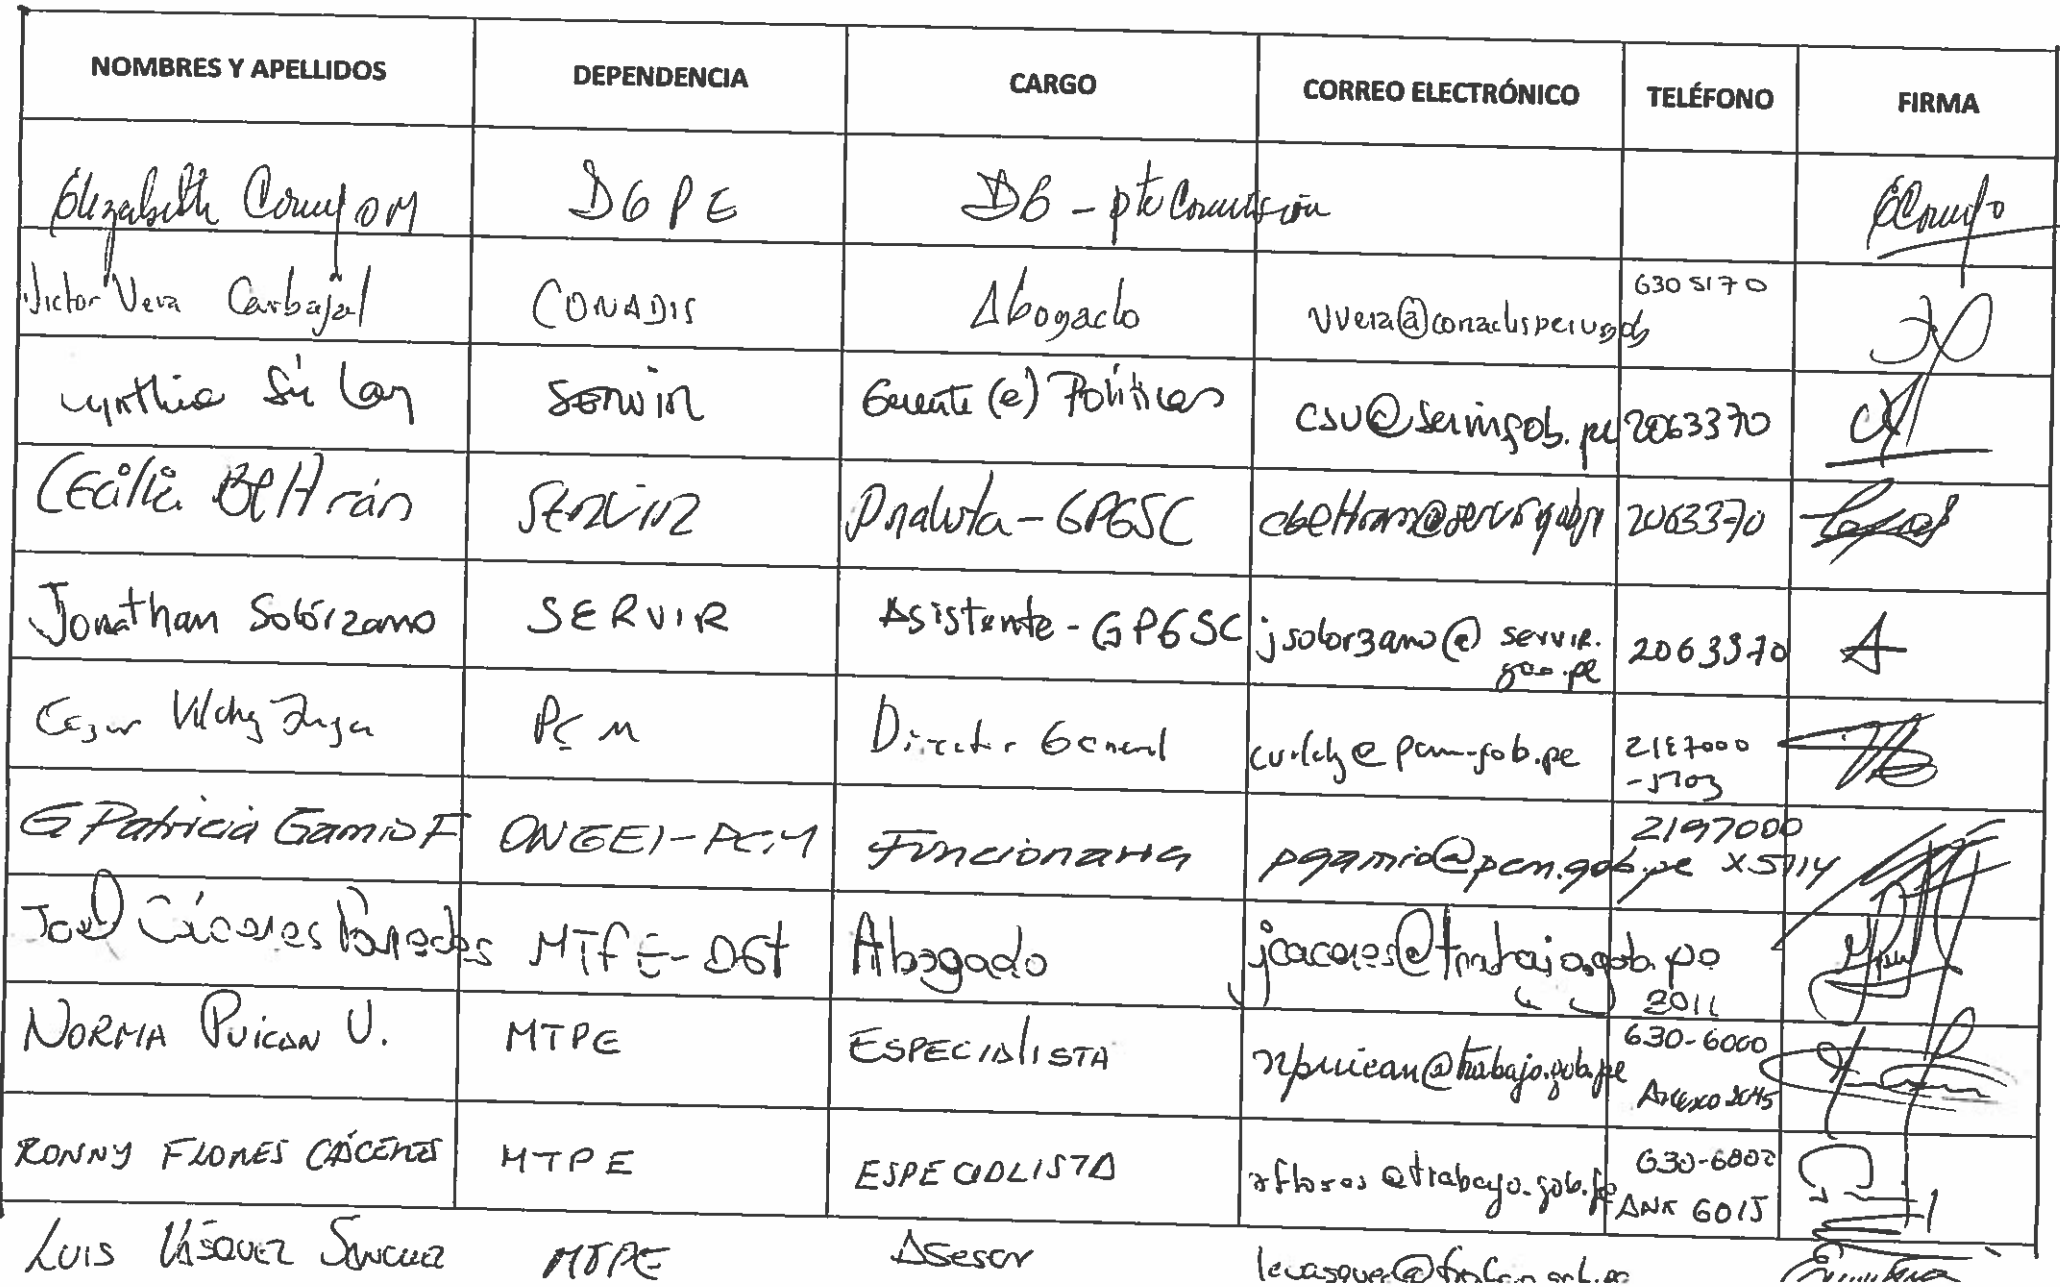 NOMBRES Y APELLIDOS DEPENDENCIA CARGO CORREO ELECTRÓNICO TELÉFONO FIRMA
Elizabeth Cornejo M DGPE DG - pte Comisión
Victor Vera Carbajal CONADIS Abogado vvera@conadisperu.gob 6305170
Cynthia Sú Lay SERVIR Gerente (e) Políticas csu@servir.gob.pe 2063370
Cecilia Beltrán SERVIR Analista - GPGSC cbeltran@servir.gob.pe 2063370
Jonathan Solórzano SERVIR Asistente - GPGSC jsolorzano@servir. 2063370
gob.pe
Cesar Vilchez Inga PCM Director General cvilchez@pcm.gob.pe 2197000
-5703
G Patricia Gamio F ONGEI-PCM Funcionaria pgamio@pcm.gob.pe 2197000
x5714
Joel Cáceres Paredes MTPE-DGT Abogado jcaceres@trabajo.gob.pe
2011
NORMA PUICAN U. MTPE ESPECIALISTA npuican@trabajo.gob.pe 630-6000
Anexo 2045
RONNY FLORES CÁCERES MTPE ESPECIALISTA rflores@trabajo.gob.pe 630-6002
ANX 6015
LUIS VÁSQUEZ SANCHEZ MTPE Asesor